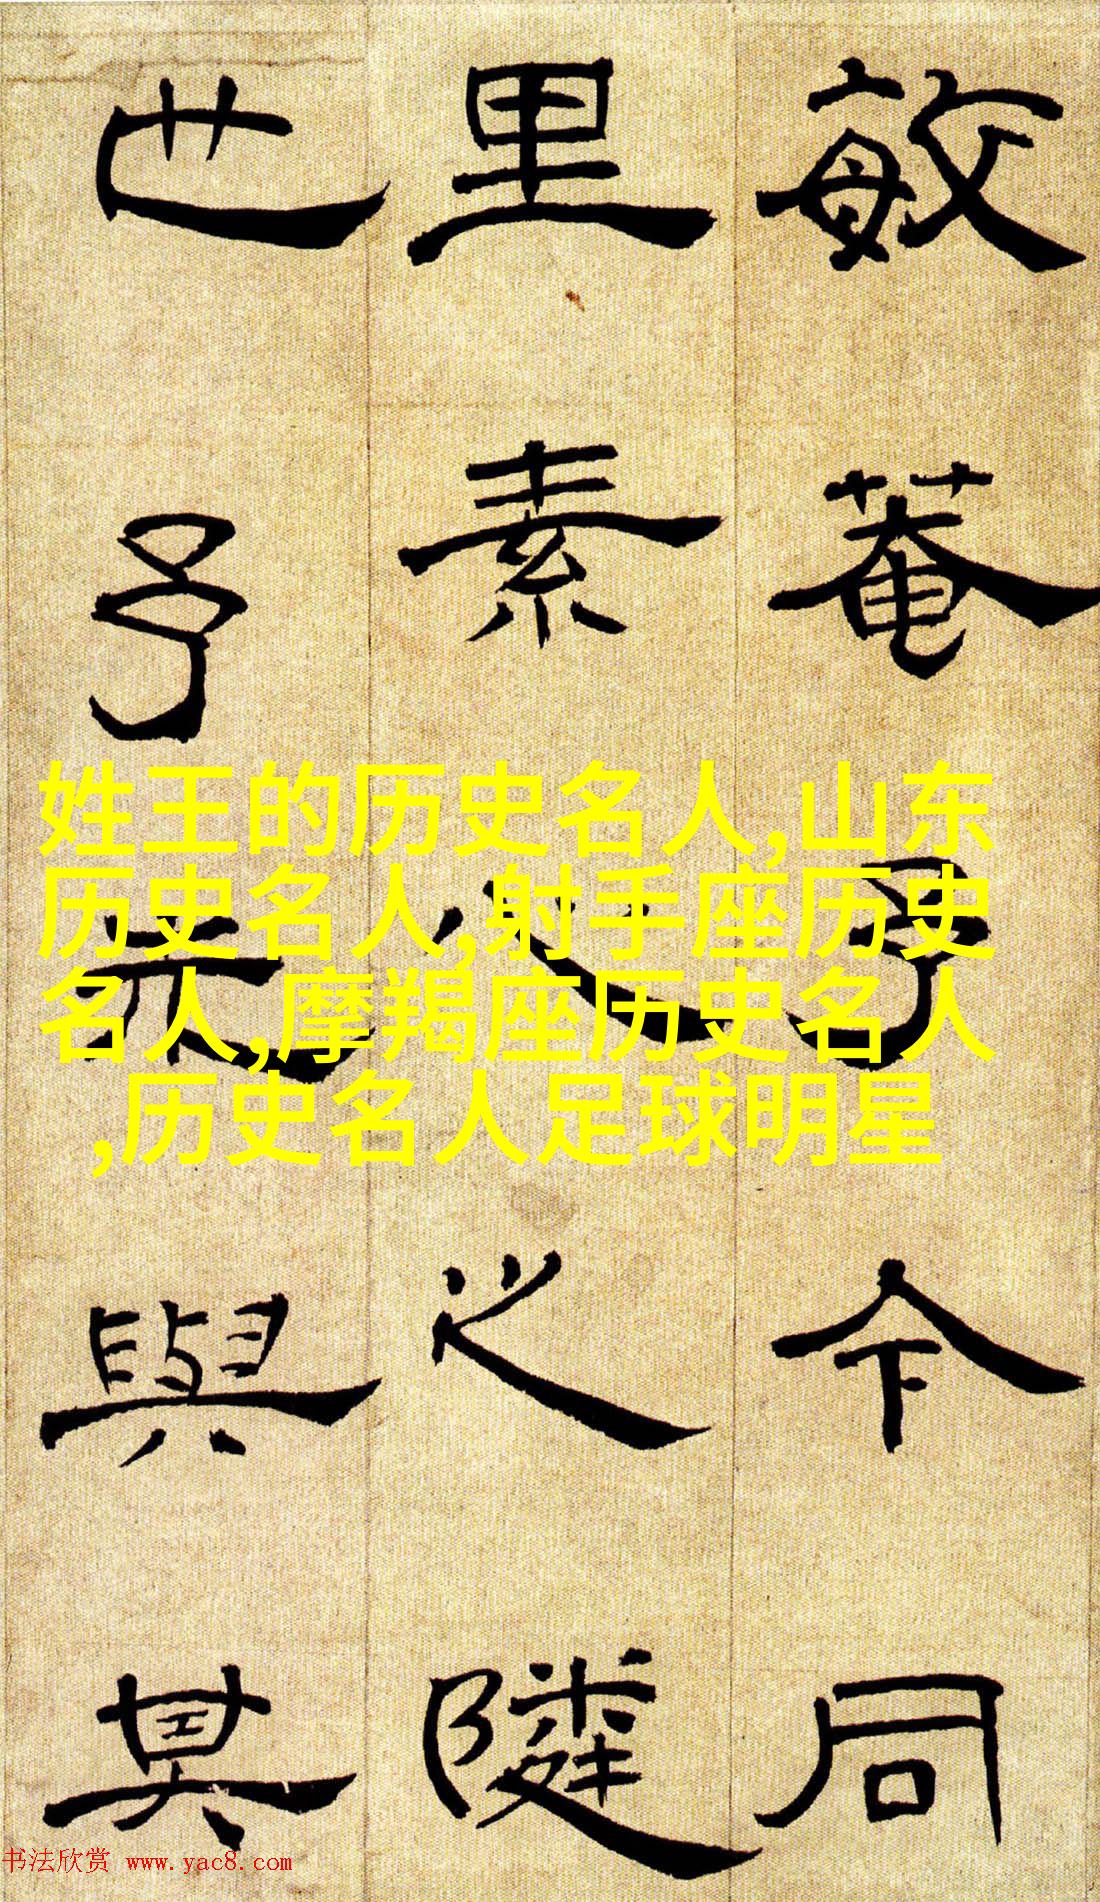 敏菴予令同
里素心之隣
也予元與其
姓王的历史名人,山东
历史名人,射手座历史
名人,摩羯座历史名人
,历史名人足球明星
书法欣赏 www.yac8.com